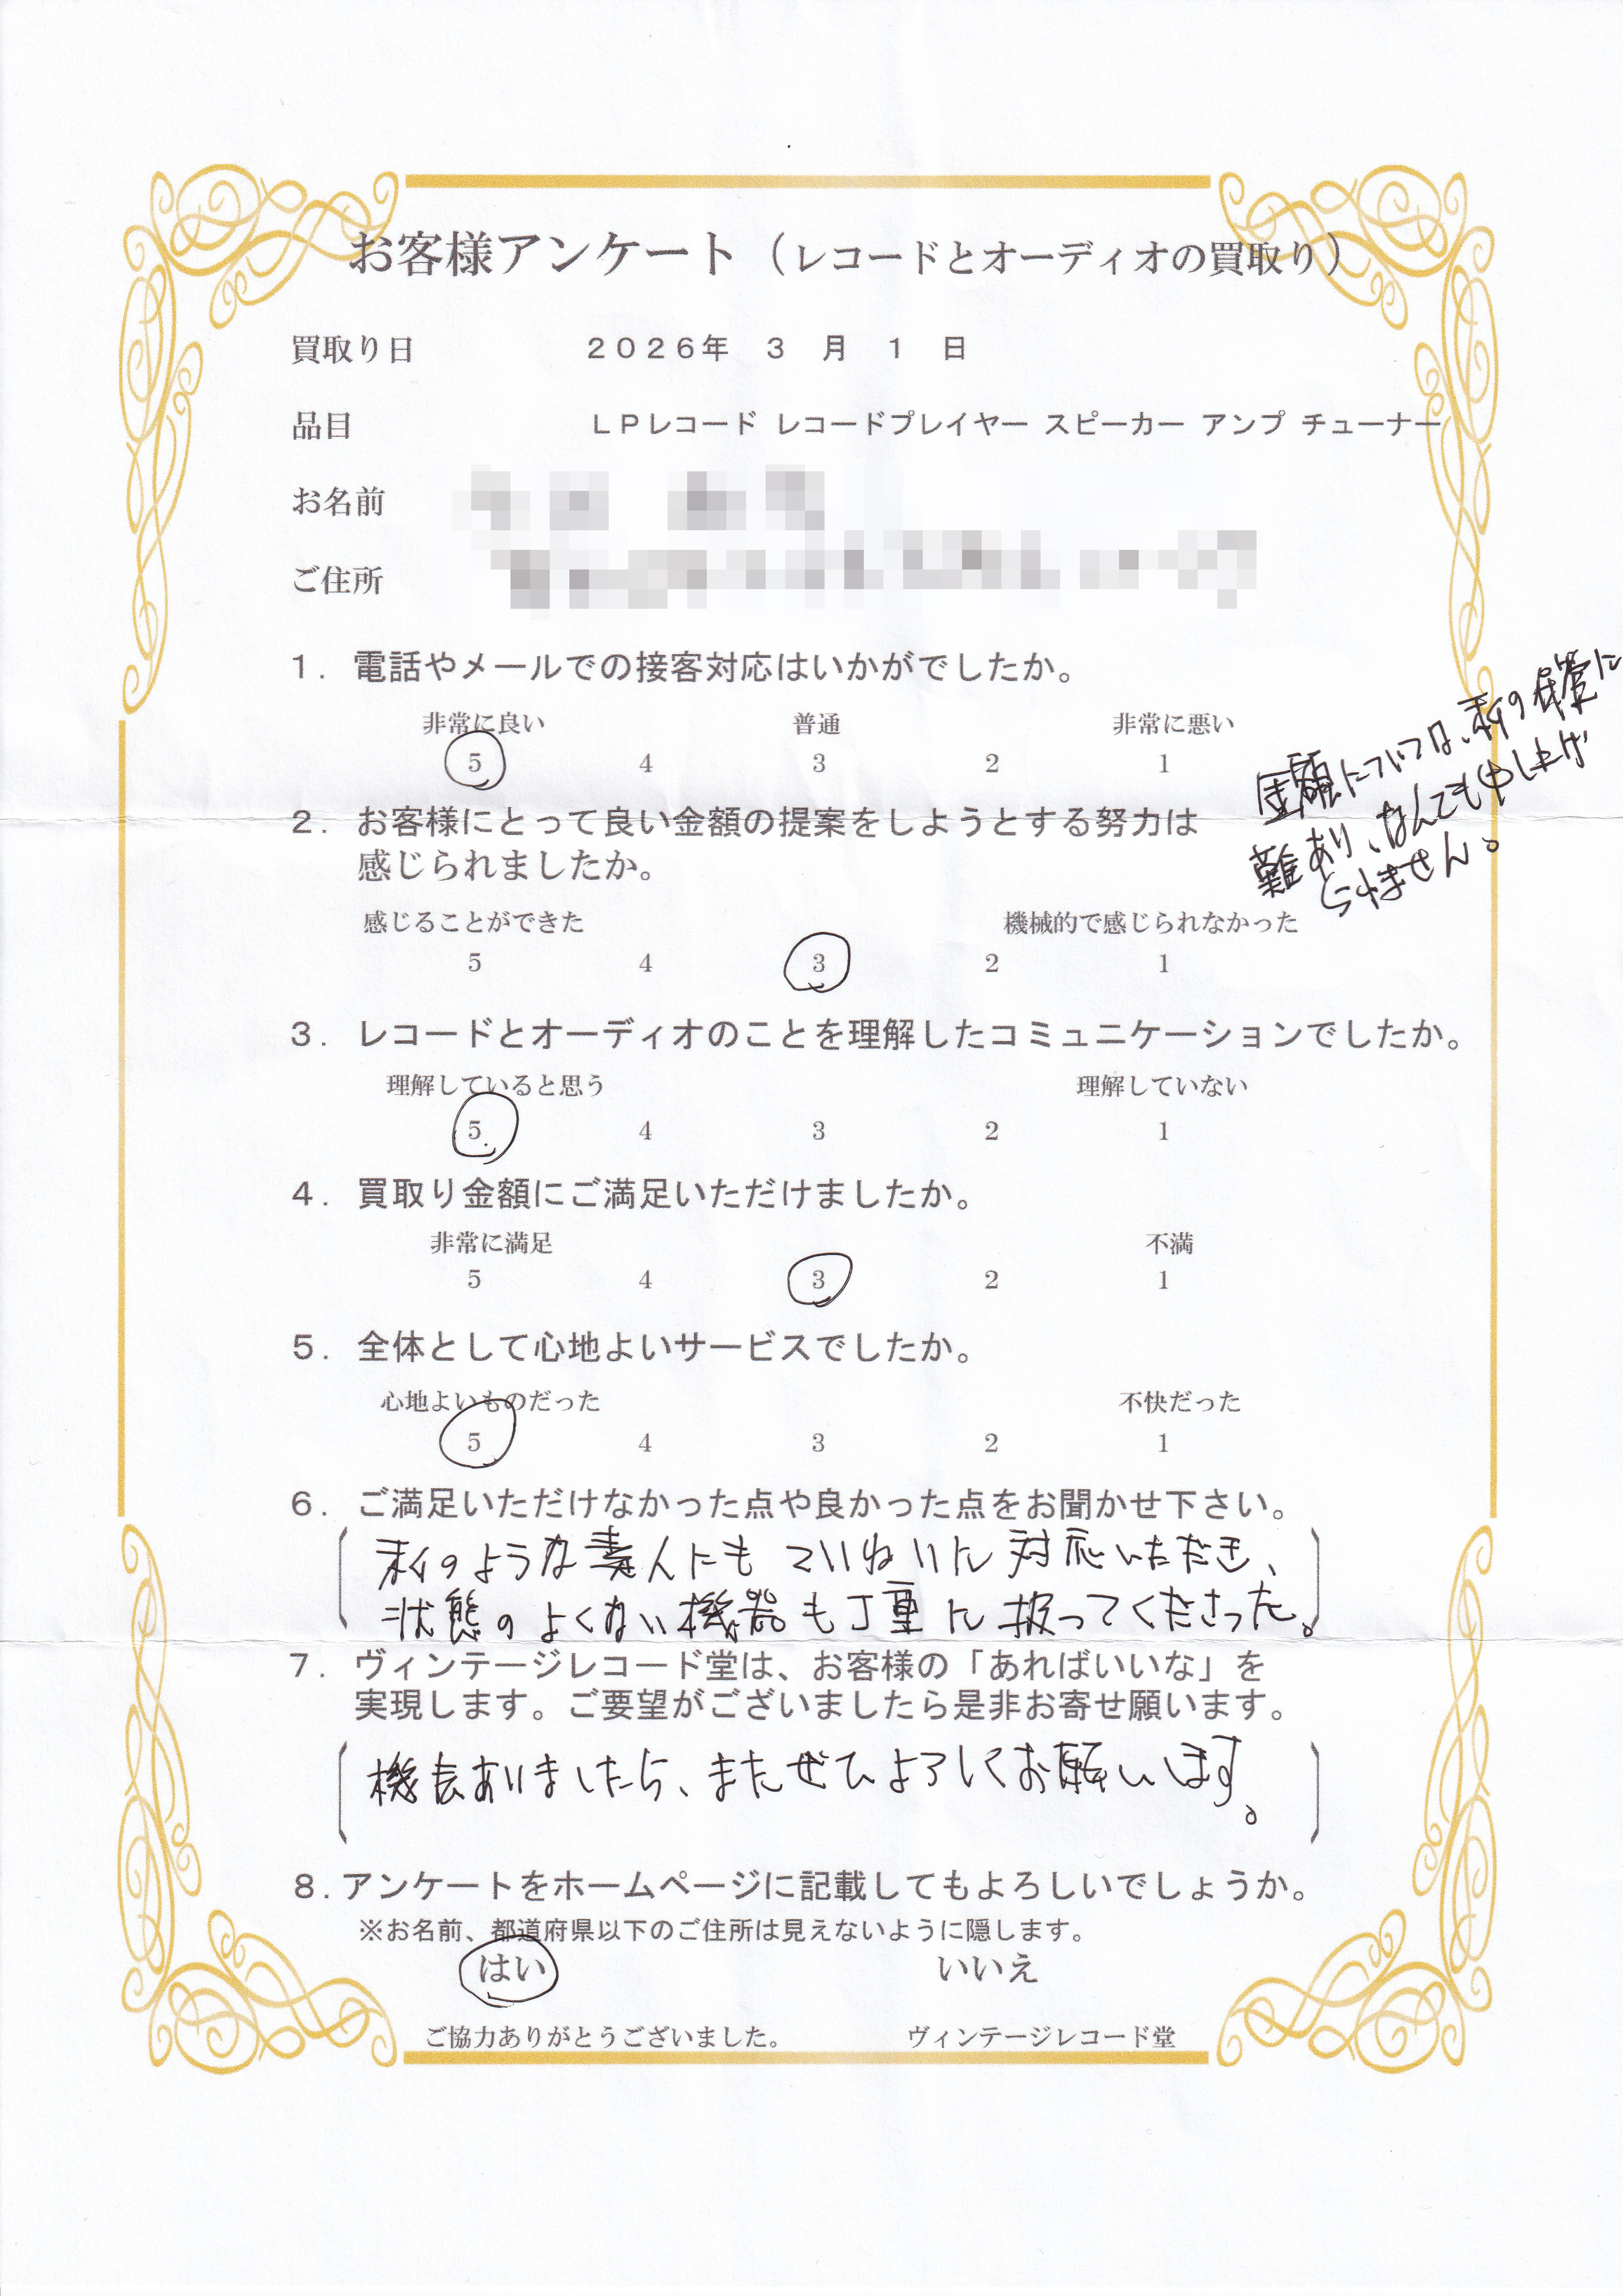 お客様アンケート（レコードとオーディオの買取り）
買取り日 2026年 3 月 1 日
品目 LPレコード レコードプレイヤー スピーカー アンプ チューナー
お名前
ご住所
1. 電話やメールでの接客対応はいかがでしたか。
非常に良い 普通 非常に悪い
5 4 3 2 1
金額については、私の保管に
難あり、なんても申し上げ
られません。
2. お客様にとって良い金額の提案をしようとする努力は
感じられましたか。
感じることができた 機械的で感じられなかった
5 4 3 2 1
3. レコードとオーディオのことを理解したコミュニケーションでしたか。
理解していると思う 理解していない
5 4 3 2 1
4. 買取り金額にご満足いただけましたか。
非常に満足 不満
5 4 3 2 1
5. 全体として心地よいサービスでしたか。
心地よいものだった 不快だった
5 4 3 2 1
6. ご満足いただけなかった点や良かった点をお聞かせ下さい。
私のような素人にも ていねいに 対応いただき、
状態のよくない機器も丁重に扱ってくださった。
7. ヴィンテージレコード堂は、お客様の「あればいいな」を
実現します。ご要望がございましたら是非お寄せ願います。
機会ありましたら、またぜひよろしくお願いします。
8.アンケートをホームページに記載してもよろしいでしょうか。
※お名前、都道府県以下のご住所は見えないように隠します。
はい いいえ
ご協力ありがとうございました。 ヴィンテージレコード堂